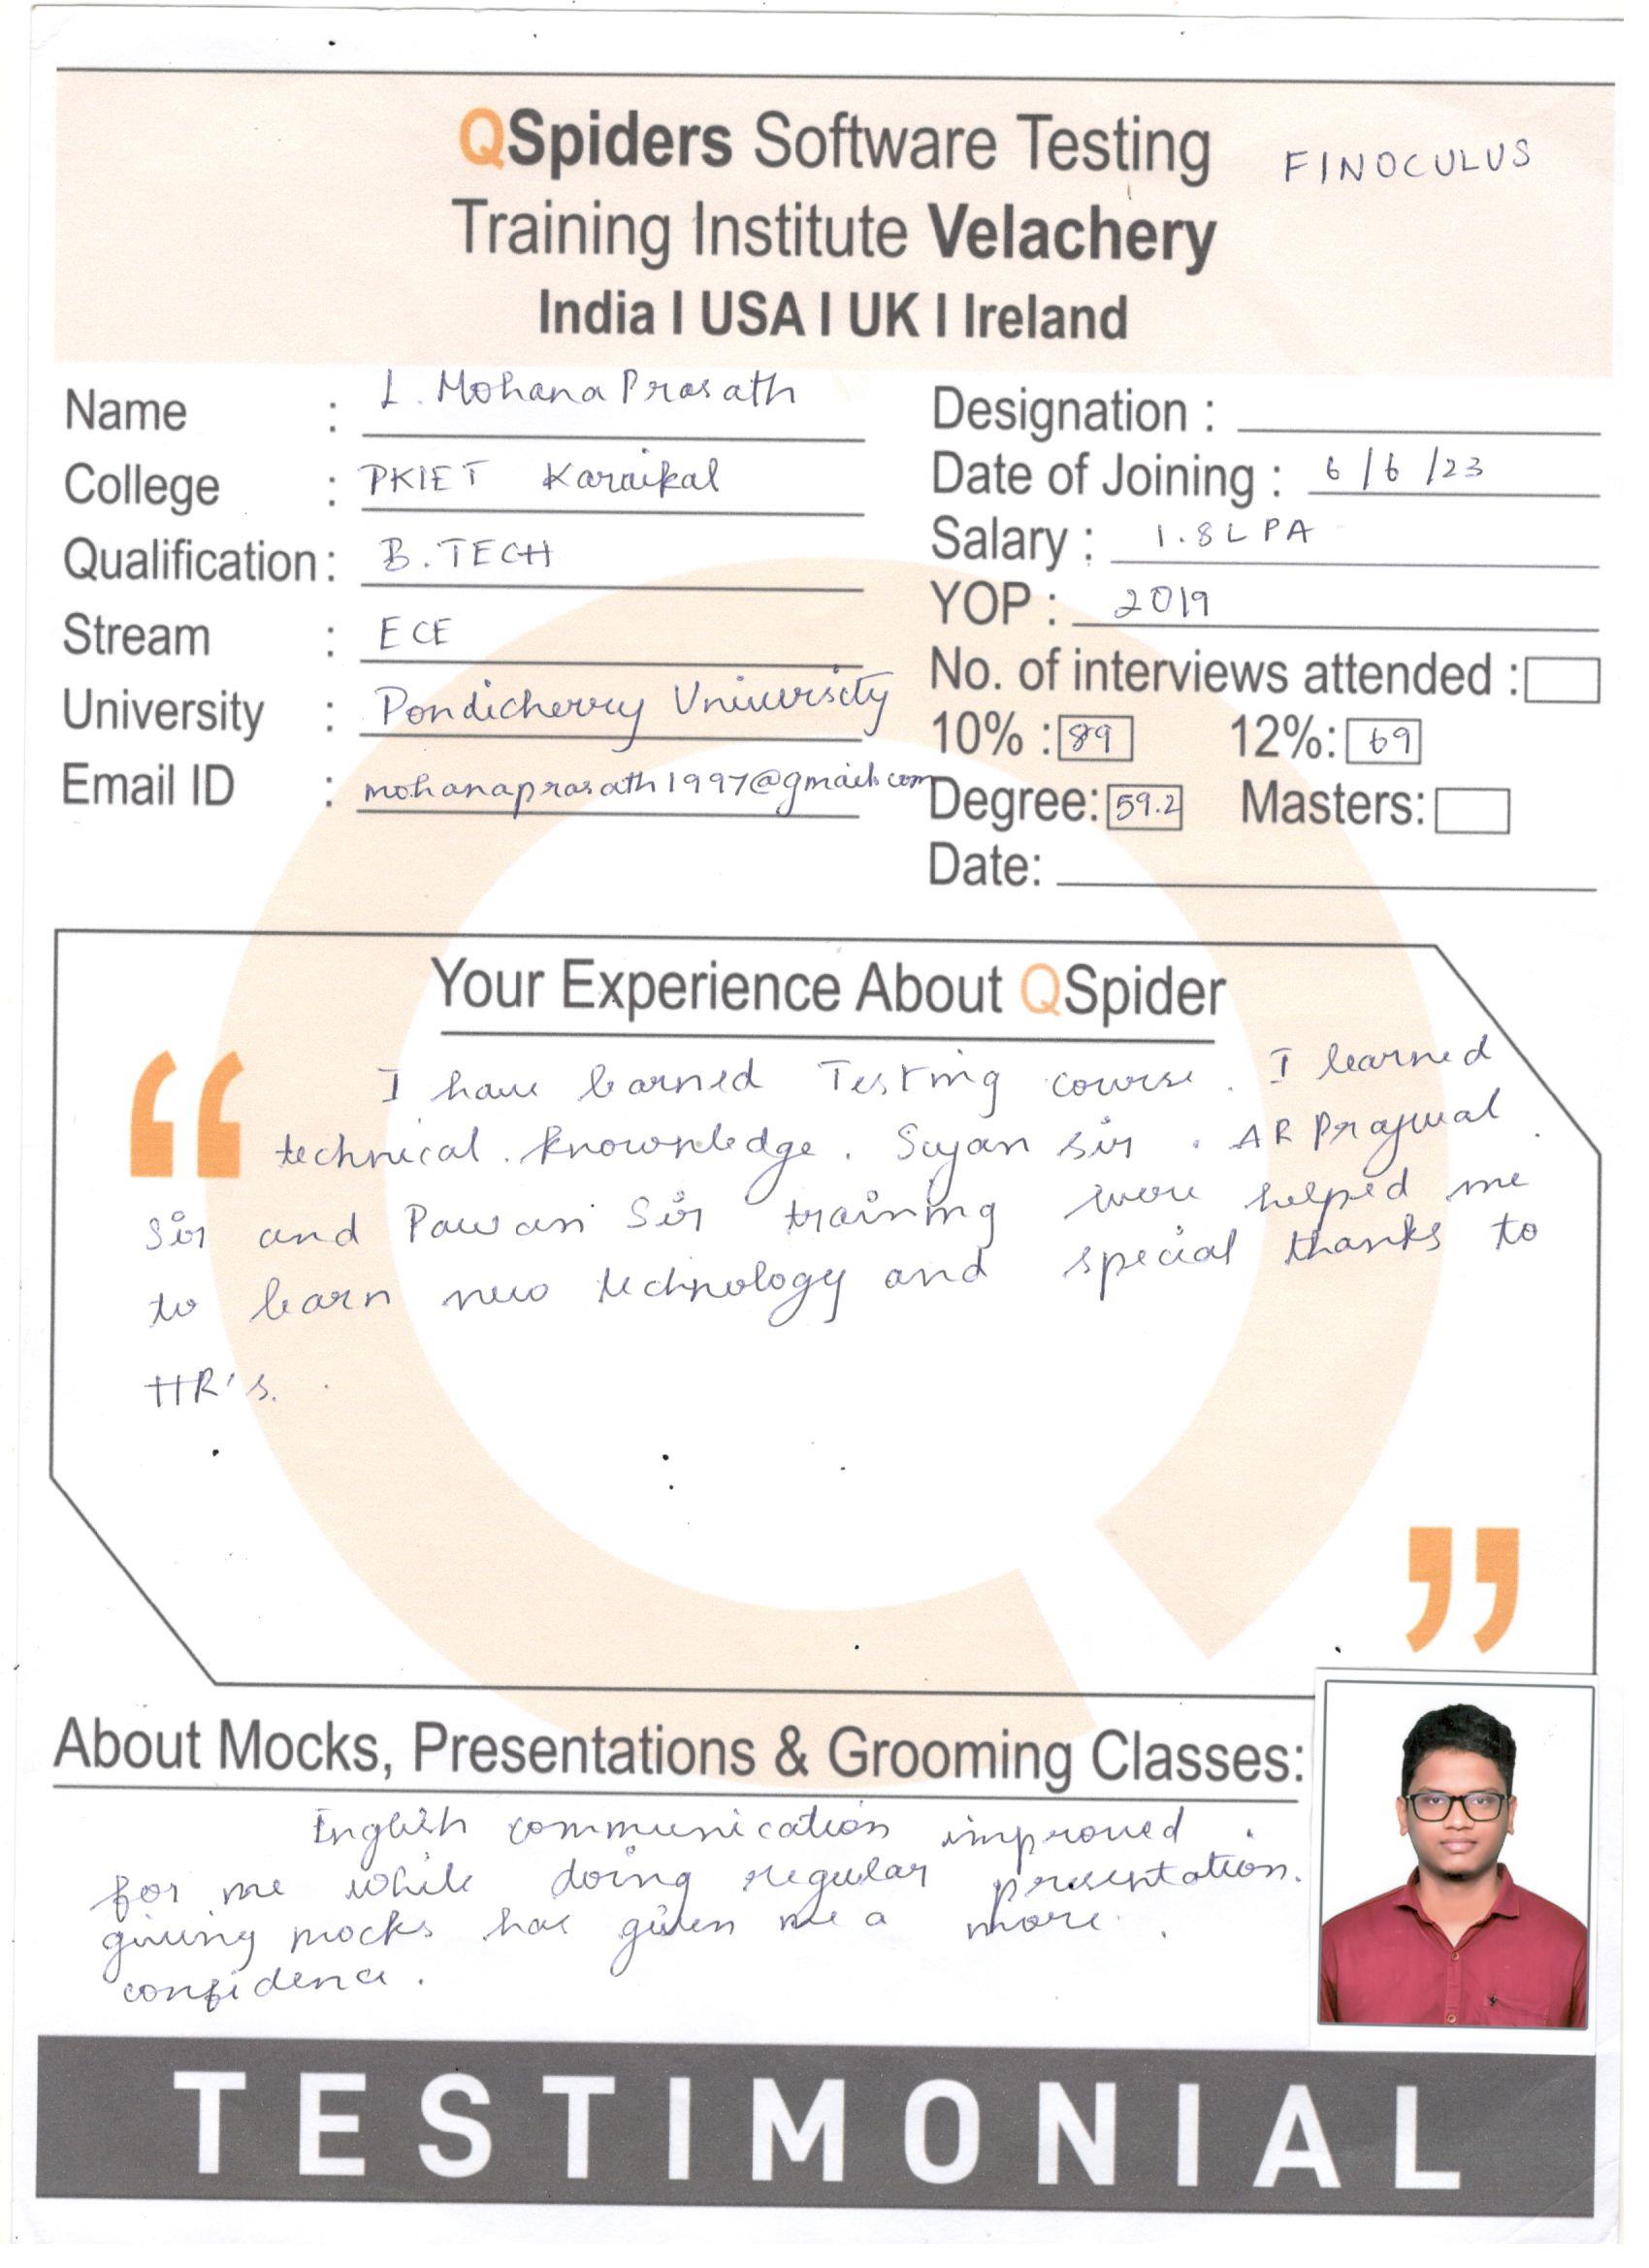 QSpiders Software Testing
FINOCULUS
Training Institute Velachery
India I USA I UK I Ireland
Name : L. Mohana Prasath
College : PKIET Karaikal
Qualification : B.TECH
Stream : ECE
University : Pondicherry University
Email ID : mohanaprasath1997@gmail.com
Designation :
Date of Joining : 6/6/23
Salary : 1.8 L PA
YOP : 2019
No. of interviews attended :
10% : 89 12%: 69
Degree: 59.2 Masters:
Date:
Your Experience About QSpider
“
I have learned Testing course. I learned
technical knowledge. Sujan sir . AR Prajwal
Sir and Pawan Sir training were helped me
to learn new technology and special thanks to
HR's.
”
About Mocks, Presentations & Grooming Classes:
English communication improved
for me while doing regular presentation.
giving mocks has given me a more
confidence.
TESTIMONIAL